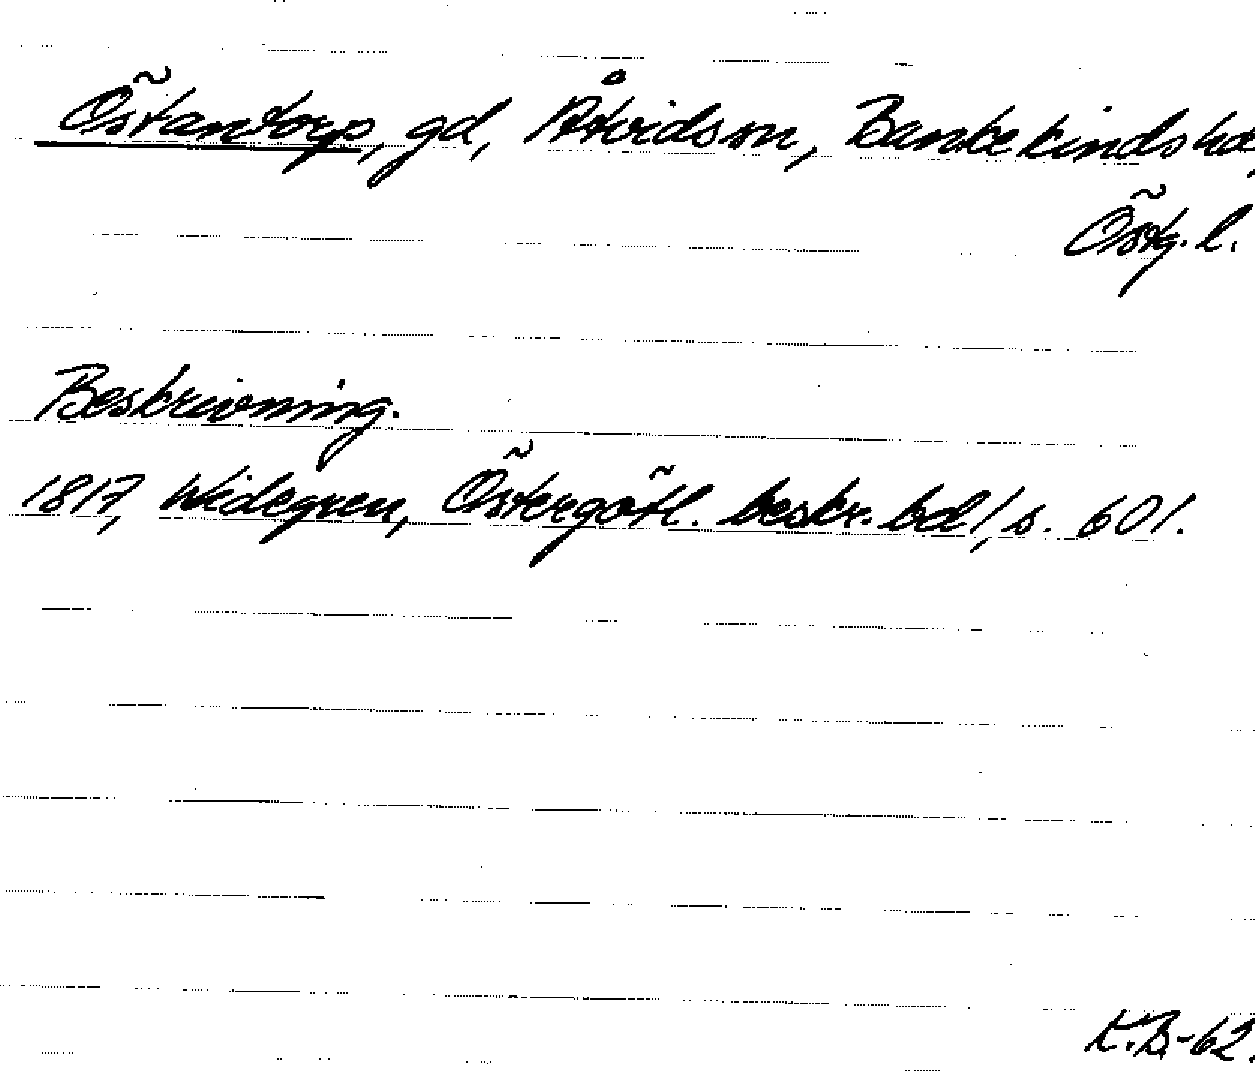 Östantorp, gd, Åtvidsn, Bankekinds hd,
Östg. l.
Beskrivning.
1817, Widegren, Östergötl. beskr. bd 1, s. 601.
K.B-62.